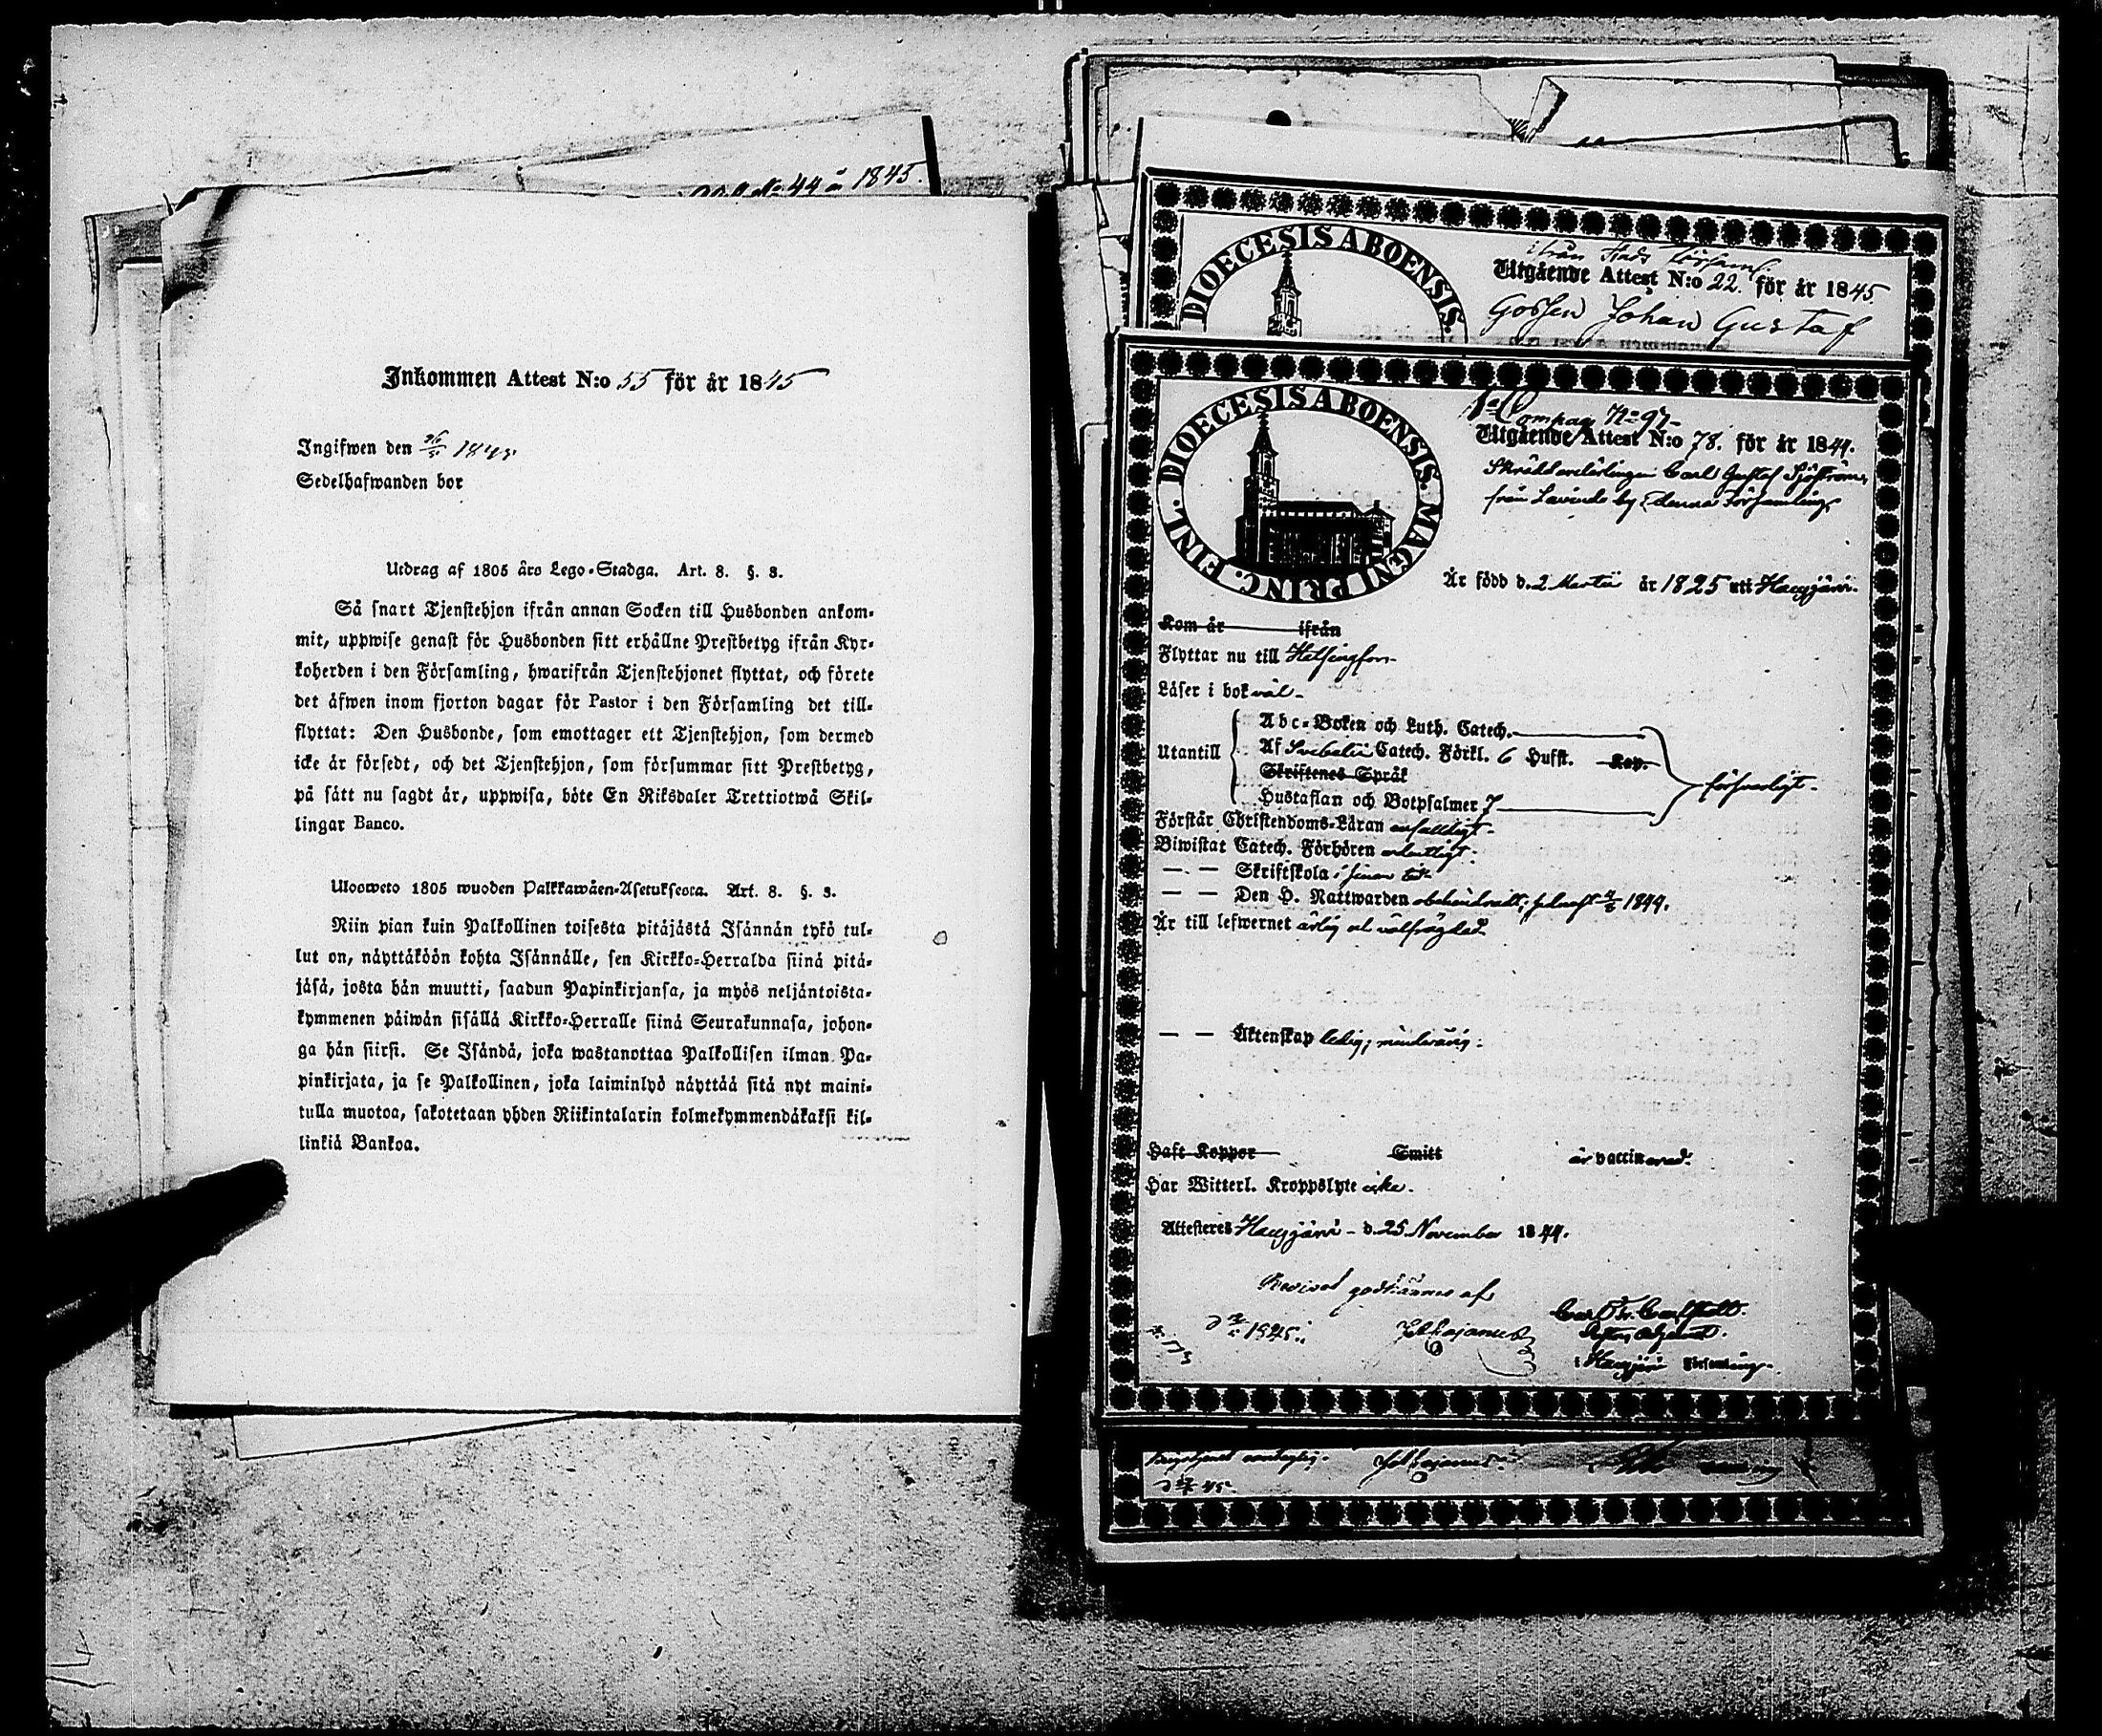 N:o 44 å 1845.
Inkommen Attest N:o 55 för år 1845
Ingifwen den 26/5 1845
Sedelhafwanden bor
Utdrag af 1805 års Lego-Stadga. Art. 8. §. 3.
Så snart Tjenstehjon ifrån annan Socken till Husbonden ankom-
mit, uppwise genast för Husbonden sitt erhållne Prestbetyg ifrån Kyr-
koherden i den Församling, hwarifrån Tjenstehjonet flyttat, och förete
det äfwen inom fjorton dagar för Pastor i den Församling det till-
flyttat: Den Husbonde, som emottager ett Tjenstehjon, som dermed
icke är försedt, och det Tjenstehjon, som försummar sitt Prestbetyg,
på sätt nu sagdt är, uppwisa, böte En Riksdaler Trettiotwå Skil-
lingar Banco.
Uloosweto 1805 wuoden Palkkawäen-Asetuksesta. Art. 8. §. 3.
Niin pian kuin Palkollinen toisesta pitäjästä Isännän tykö tul-
lut on, näyttäköön kohta Isännälle, sen Kirkko-Herralda siinä pitä-
jäsä, josta hän muutti, saadun Papinkirjansa, ja myös neljäntoista-
kymmenen päiwän sisällä Kirkko-Herralle siinä Seurakunnasa, johon-
ga hän siirsi. Se Isändä, joka wastanottaa Palkollisen ilman Pa-
pinkirjata, ja se Palkollinen, joka laiminlyö näyttää sitä nyt maini-
tulla muotoa, sakotetaan yhden Riikintalarin kolmekymmendäkaksi kil-
linkiä Bankoa.
DIOECESIS ABOENSIS.
ifrån Stads Församl.
Utgående Attest N:o 22. för år 1845.
Gossen Johan Gustaf
DIOECESIS ABOENSIS. MAGNI PRINC. FINL.
1a Compag N:o 97-
Utgående Attest N:o 78. för år 1844.
Skräddarelärlingen Carl Gustaf Sjöström,
från Lavinto by i denna Församling
Är född d. 2 Martii år 1825 uti Hausjärvi.
Kom år ifrån
Flyttar nu till Helsingfors
Läser i bok väl.
Utantill
Abc-Boken och Luth. Catech.
Af Svebelii Catech. Förkl. 6 Hufst. Kap.
Skriftenes Språk
Hustaflan och Botpsalmer 7
försvarligt.
Förstår Christendoms-Läran enfaldigt.
Biwistat Catech. Förhören ordentligt.
— — Skriftskola i sinom tid
— — Den H. Nattwarden obehindradt; sednast 1844.
Är till lefwernet ärlig och välfrägdad.
— — Äktenskap ledig; minderårig.
Haft Koppor Smitt är vaccinerad.
Har Witterl. Kroppslyte icke.
Attesteres Hausjärvi - d. 25 November 1844.
godkännes af
1845.
i Hausjärvi Församling.
45.